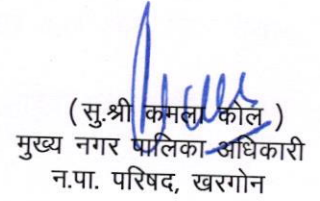 ( सु.श्री कमला कोल )
मुख्य नगर पालिका अधिकारी
न.पा. परिषद, खरगोन